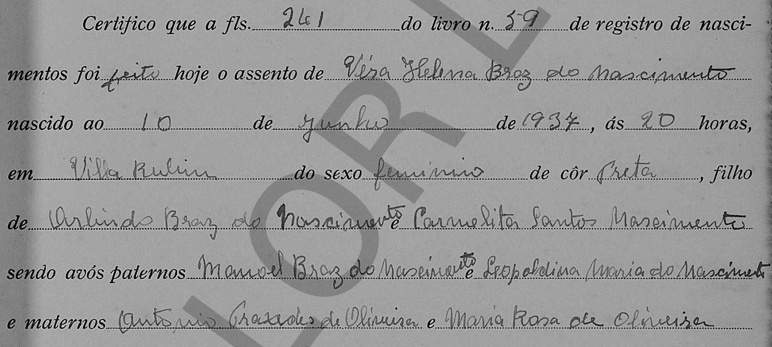 Certifico que a fls. 241 do livro n. 59 de registro de nasci-
mentos foi feito hoje o assento de Véra Helena Braz do Nascimento
nascido ao 10 de junho de 1937, ás 20 horas,
em Villa Rubim do sexo feminino de côr Preta, filho
de Arlindo Braz do Nascimento e Carmelita Santos Nascimento
sendo avós paternos Manoel Braz do Nascimento e Leopoldina Maria do Nascimento
e maternos Antonio Praxedes de Oliveira e Maria Rosa de Oliveira